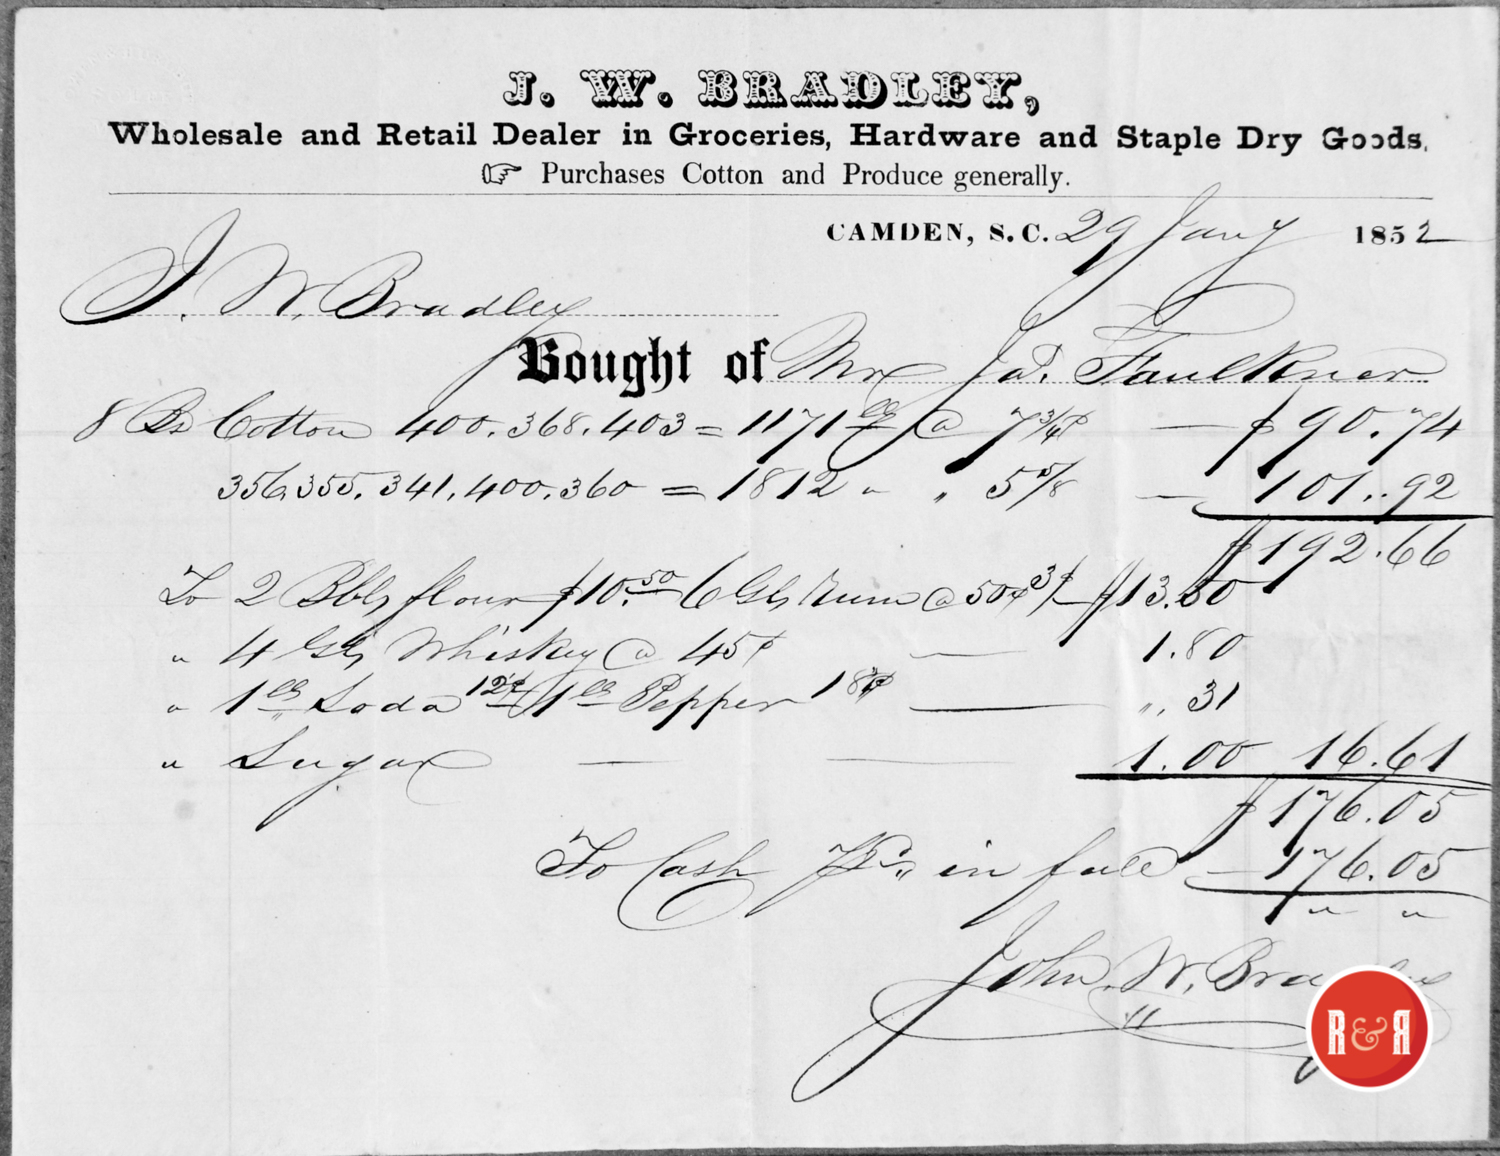 J. W. BRADLEY,
Wholesale and Retail Dealer in Groceries, Hardware and Staple Dry Goods,
☞ Purchases Cotton and Produce generally.
CAMDEN, S.C. 29 Jany 1852
J. W. Bradley
Bought of Mr Jas. Faulkner
8 Bs Cotton 400. 368. 403 = 1171 lbs @ 7 3/4¢ — $90.74
356. 355. 341. 400. 360 = 1812 " " 5 5/8 — 101..92
$192.66
To 2 Bbls flour $10.50 6 Gls Rum @ 50¢ 3$ — $13.50
" 4 Gls Whiskey @ 45¢ — 1.80
" 1 lb Soda 12¢ 1 lb Pepper 18¾¢ — ". 31
" Sugar — — 1.00 16.61
$176.05
To Cash in full — 176.05
" "
John W. Bradley
R&R